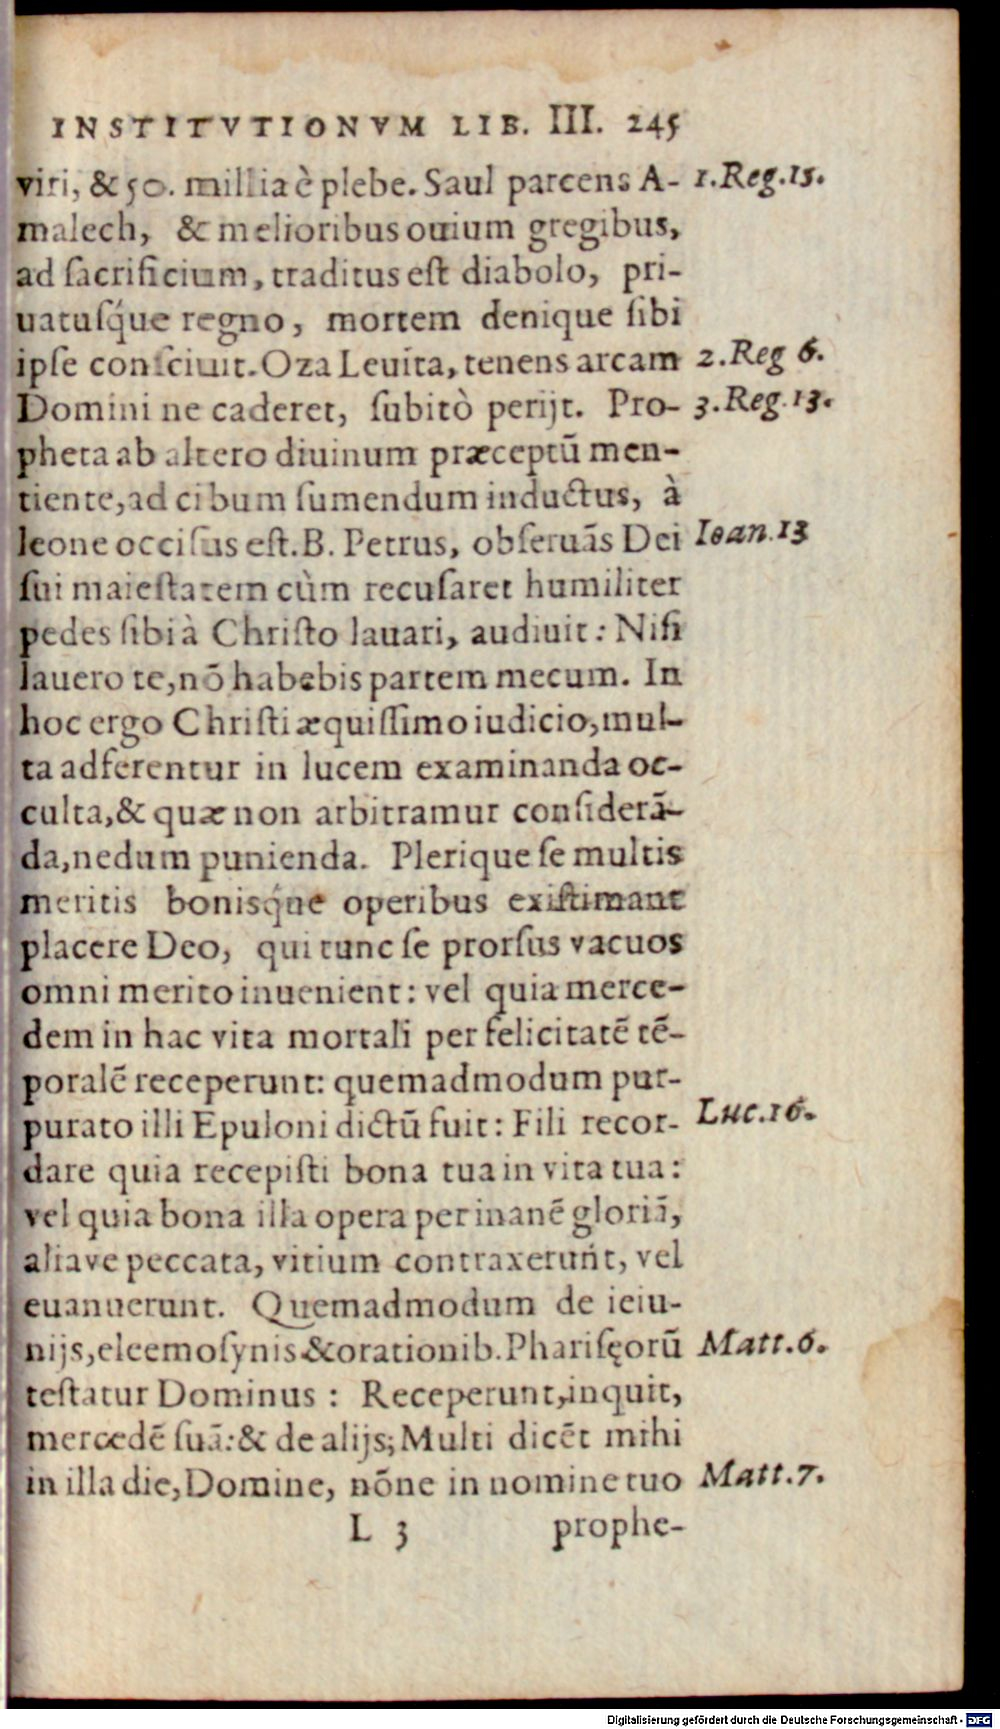 INSTITVTIONVM LIB. III. 245
viri, & 50. millia è plebe. Saul parcens A- 1.Reg.15.
malech, & melioribus ouium gregibus,
ad ſacrificium, traditus eſt diabolo, pri-
uatuſq́ue regno, mortem denique ſibi
ipſe conſciuit. Oza Leuita, tenens arcam 2.Reg 6.
Domini ne caderet, ſubitò perijt. Pro- 3.Reg.13.
pheta ab altero diuinum præceptũ men-
tiente, ad cibum ſumendum inductus, à
leone occiſus eſt. B. Petrus, obſeruãs Dei Ioan.13
ſui maieſtatem cùm recuſaret humiliter
pedes ſibi à Chriſto lauari, audiuit: Niſi
lauero te, nõ habebis partem mecum. In
hoc ergo Chriſti æquiſſimo iudicio, mul-
ta adferentur in lucem examinanda oc-
culta, & quæ non arbitramur conſiderã-
da, nedum punienda. Plerique ſe multis
meritis bonisq́ue operibus exiſtimant
placere Deo, qui tunc ſe prorſus vacuos
omni merito inuenient: vel quia merce-
dem in hac vita mortali per felicitatẽ tẽ-
poralẽ receperunt: quemadmodum pur-
purato illi Epuloni dictũ fuit: Fili recor- Luc.16.
dare quia recepiſti bona tua in vita tua:
vel quia bona illa opera per inanẽ gloriã,
aliave peccata, vitium contraxerunt, vel
euanuerunt. Quemadmodum de ieiu-
nijs, eleemoſynis & orationib. Phariſęorũ Matt.6.
teſtatur Dominus: Receperunt, inquit,
mercedẽ ſuã: & de alijs; Multi dicẽt mihi
in illa die, Domine, nõne in nomine tuo Matt.7.
L 3 prophe-
Digitalisierung gefördert durch die Deutsche Forschungsgemeinschaft - DFG